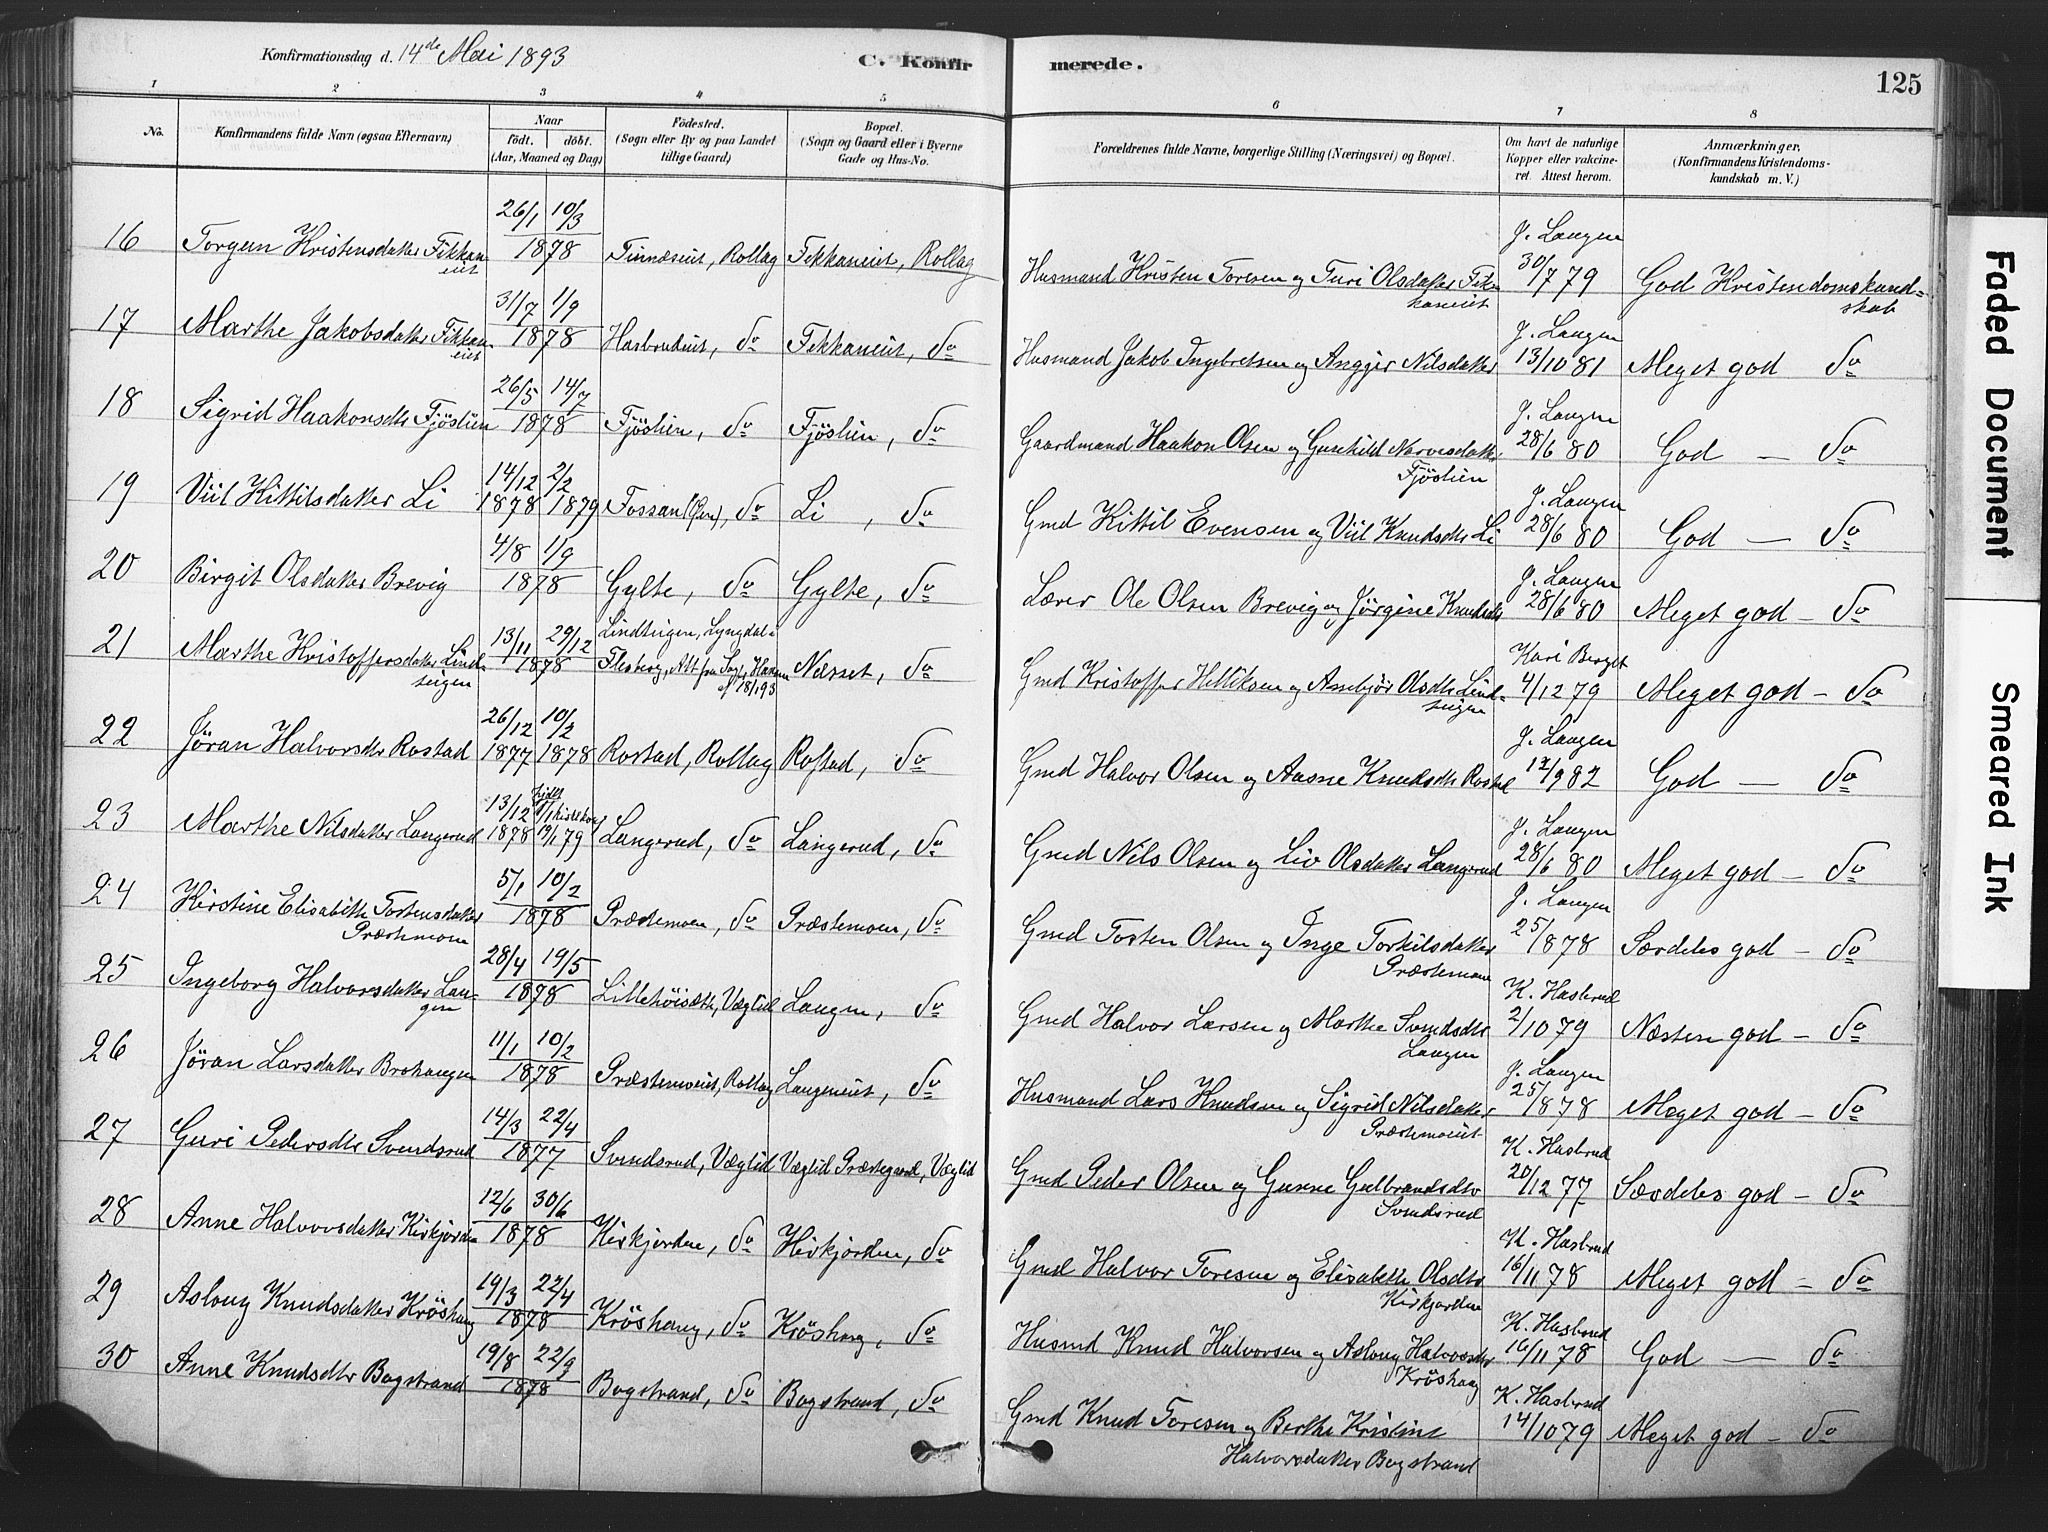 Konfirmationsdag d. 14de Mai 1893
C. Konfirmerede.
125
1 2 3 4 5 6 7 8
No. Konfirmandens fulde Navn (ogsaa Efternavn) Naar Födt. döbt. (Aar, Maaned og Dag) Födested. (Sogn eller By og paa Landet tillige Gaard) Bopæl. (Sogn og Gaard eller i Byerne Gade og Hus-No. Forældrenes fulde Navne, borgerlige Stilling (Næringsvei) og Bopæl. Om havt de naturlige Kopper eller vakcineret. Attest herom. Anmærkninger. (Konfirmandens Kristendomskundskab m. V.)
16 Torgun Kristensdatter Fekkaneiet 26/1 10/3 1878 Tinnæseiet, Rollag Fekkaneiet, Rollag Husmand Kristen Toresen og Turi Olsdatter Fekkaneiet J. Laugen 30/7 79 God Kristendomskundskab
17 Marthe Jakobsdatter Fekkaneiet 31/7 1/9 1878 Hasbrudeiet, Do Fekkaneiet, Do Husmand Jakob Ingebretsen og Angjer Nilsdatter J. Laugen 13/10 81 Meget god Do
18 Sigrid Haakonsdtr Fjöslien 26/5 14/7 1878 Fjöslien, Do Fjöslien, Do Gaardmand Haakon Olsen og Gunhild Narvesdatter Fjöslien J. Laugen 28/6 80 God — Do
19 Viil Kittilsdatter Li 14/12 1878 2/2 1879 Fossan, Do Li, Do Gmd Kittil Evensen og Viil Knudsdtr Li J. Laugen 28/6 80 God — Do
20 Birgit Olsdatter Brevig 4/8 1/9 1878 Gylte, Do Gylte, Do Lærer Ole Olsen Brevig og Jörgine Knudsdtr J. Laugen 28/6 80 Meget god — Do
21 Marthe Kristoffersdatter Lindseigen 13/11 29/12 1878 Lindseigen, Lyngdal i Flesberg, Att fra Sogr. Hansen af 18/1 93 Næsset, Do Gmd Kristoffer Helliksen og Annbjør Olsdtr Lindseigen Kari Berget 4/12 79 Meget god — Do
22 Jöran Halvorsdtr Rostad 26/12 1877 10/2 1878 Rostad, Rollag Rostad, Do Gmd Halvor Olsen og Aasne Knudsdtr Rostad J. Laugen 12/9 82 God — Do
23 Marthe Nilsdatter Langerud 13/12 1878 19/1 79 Langerud, Do Langerud, Do Gmd Nils Olsen og Liv Olsdatter Langerud J. Laugen 28/6 80 Meget god — Do
24 Kirstine Elisabeth Tostensdatter Præstemoen 5/1 10/2 1878 Præstemoen, Do Præstemoen, Do Gmd Tosten Olsen og Inge Torkilsdatter Præstemoen J. Laugen 25/8 78 Særdeles god — Do
25 Ingeborg Halvorsdatter Laugen 28/4 19/5 1878 Lillehöisæth, Væglid Laugen, Do Gmd Halvor Larsen og Marthe Svendsdtr Laugen K. Hasbrud 2/10 79 Næsten god — Do
26 Jöran Larsdatter Brohaugen 11/1 10/2 1878 Præstemoeiet, Rollag Laugeneiet, Do Husmand Lars Knudsen og Sigrid Nilsdatter Præstemoeiet J. Laugen 25/8 78 Meget god — Do
27 Guri Pedersdtr Svendsrud 14/3 22/4 1877 Svendsrud, Væglid Væglid Præstegaard, Væglid Gmd Peder Olsen og Gunne Gulbrandsdtr Svendsrud K. Hasbrud 20/12 77 Særdeles god — Do
28 Anne Halvorsdatter Kirkjorden 12/6 30/6 1878 Kirkjorden, Do Kirkjorden, Do Gmd Halvor Toresen og Elisabeth Olsdtr Kirkjorden K. Hasbrud 16/11 78 Meget god — Do
29 Aslaug Knudsdatter Kröshaug 19/3 22/4 1878 Kröshaug, Do Kröshaug, Do Husmd Knud Halvorsen og Aslaug Halvorsdtr Kröshaug K. Hasbrud 16/11 78 God — Do
30 Anne Knudsdtr Bogstrand 19/8 22/9 1878 Bogstrand, Do Bogstrand, Do Gmd Knud Toresen og Berthe Kristine Halvorsdatter Bogstrand K. Hasbrud 14/10 79 Meget god — Do
Faded Document
Smeared Ink